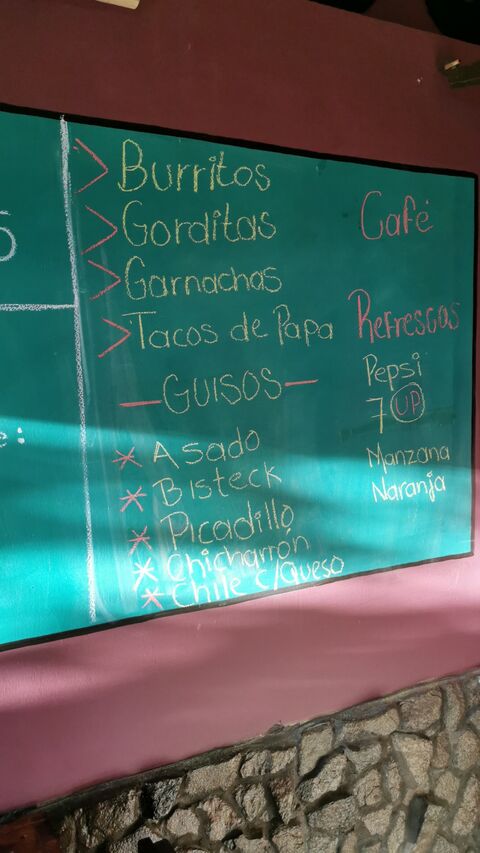 > Burritos
> Gorditas
> Garnachas
> Tacos de Papa
— GUISOS —
* Asado
* Bisteck
* Picadillo
* Chicharrón
* Chile c/queso
Café
Refrescos
Pepsi
7 UP
Manzana
Naranja